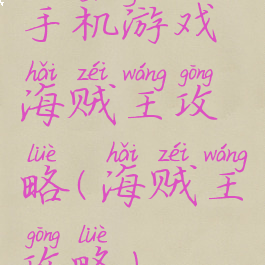 手机游戏
hǎi zéi wáng gōng
海贼王攻
lüè hǎi zéi wáng
略(海贼王
gōng lüè
攻略)